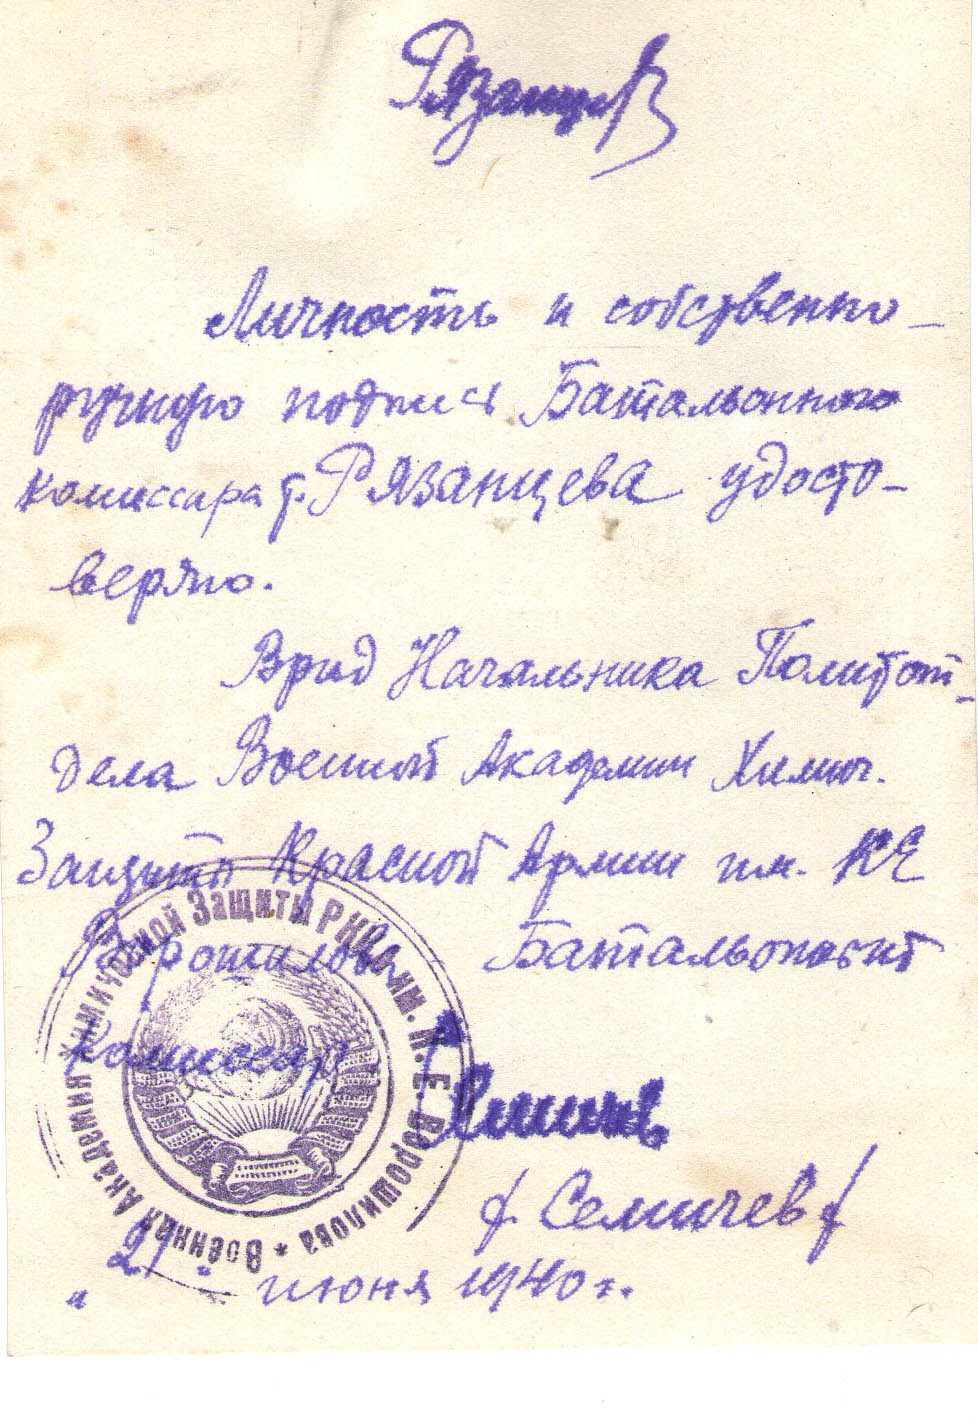 Рязанцев
Личность и собственно-
ручную подпись Батальонного
комиссара т. Рязанцева удосто-
веряю.
Врид Начальника Политот-
дела Военной Академии Химич.
Защиты Красной Армии им. КЕ
Ворошилова Батальонный
Комиссар
/Семичев/
"21" июня 1940 г.
Военная Академия Химической Защиты РККА им. К. Е. Ворошилова *